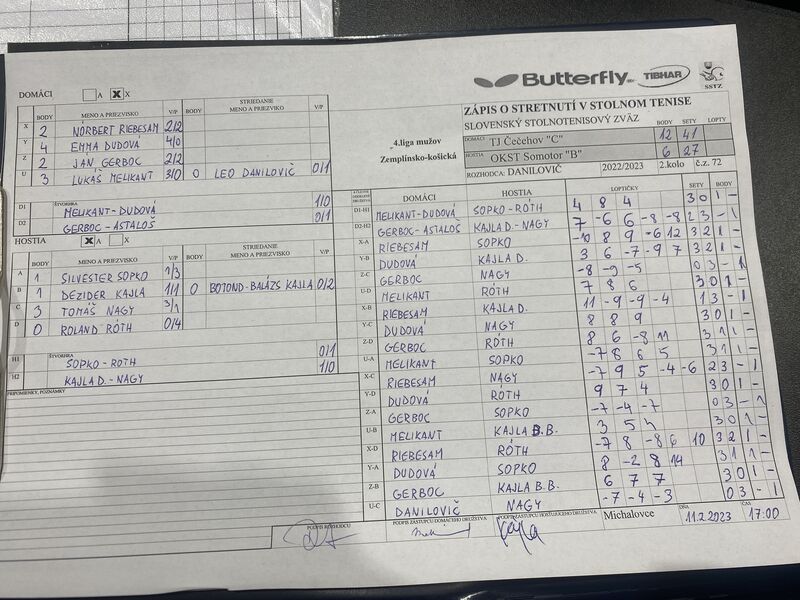 Butterfly TIBHAR SSTZ
DOMÁCI A X X
ZÁPIS O STRETNUTÍ V STOLNOM TENISE
SLOVENSKÝ STOLNOTENISOVÝ ZVÄZ
BODY SETY LOPTY
DOMÁCI TJ Čečehov "C" 12 41
HOSTIA OKST Somotor "B" 6 27
ROZHODCA: DANILOVIČ 2022/2023 2.kolo č.z. 72
„4.liga mužov
Zemplínsko-košická
BODY MENO A PRIEZVISKO V/P BODY STRIEDANIE MENO A PRIEZVISKO V/P
X 2 NORBERT RIEBESAM 2/2
Y 4 EMMA DUDOVÁ 4/0
Z 2 JAN GERBOC 2/2
U 3 LUKÁŠ MELIKANT 3/0 0 LEO DANILOVIČ 0/1
ŠTVORHRA
D1 MELIKANT-DUDOVÁ 1/0
D2 GERBOC-ASTALOŠ 0/1
HOSTIA A X X
BODY MENO A PRIEZVISKO V/P BODY STRIEDANIE MENO A PRIEZVISKO V/P
A 1 SILVESTER SOPKO 1/3
B 1 DEZIDER KAJLA 1/1 0 BOTOND-BALÁZS KAJLA 0/2
C 3 TOMÁŠ NAGY 3/1
D 0 ROLAND RÓTH 0/4
ŠTVORHRA
H1 SOPKO-ROTH 0/1
H2 KAJLA D.-NAGY 1/0
PRIPOMIENKY, POZNÁMKY
DOMÁCI HOSTIA LOPTIČKY SETY BODY
D1-H1 MELIKANT-DUDOVÁ SOPKO-RÓTH 4 8 4 3 0 1 -
D2-H2 GERBOC-ASTALOŠ KAJLA D.-NAGY 7 -6 6 -8 -8 2 3 - 1
X-A RIEBESAM SOPKO -10 8 9 -6 12 3 2 1 -
Y-B DUDOVÁ KAJLA D. 3 6 -7 -9 7 3 2 1 -
Z-C GERBOC NAGY -8 -9 -5 0 3 - 1
U-D MELIKANT RÓTH 7 8 6 3 0 1 -
X-B RIEBESAM KAJLA D. 11 -9 -9 -4 1 3 - 1
Y-C DUDOVÁ NAGY 8 8 9 3 0 1 -
Z-D GERBOC RÓTH 8 6 -8 11 3 1 1 -
U-A MELIKANT SOPKO -7 8 6 5 3 1 1 -
X-C RIEBESAM NAGY -7 9 5 -4 -6 2 3 - 1
Y-D DUDOVÁ RÓTH 9 7 4 3 0 1 -
Z-A GERBOC SOPKO -7 -4 -7 0 3 - 1
U-B MELIKANT KAJLA B.B. 3 5 4 3 0 1 -
X-D RIEBESAM RÓTH -7 8 -8 6 10 3 2 1 -
Y-A DUDOVÁ SOPKO 8 -2 8 14 3 1 1 -
Z-B GERBOC KAJLA B.B. 6 7 7 3 0 1 -
U-C DANILOVIČ NAGY -7 -4 -3 0 3 - 1
PODPIS ROZHODCU PODPIS ZÁSTUPCU DOMÁCEHO DRUŽSTVA PODPIS ZÁSTUPCU HOSŤUJÚCEHO DRUŽSTVA Michalovce DŇA 11.2.2023 ČAS 17:00